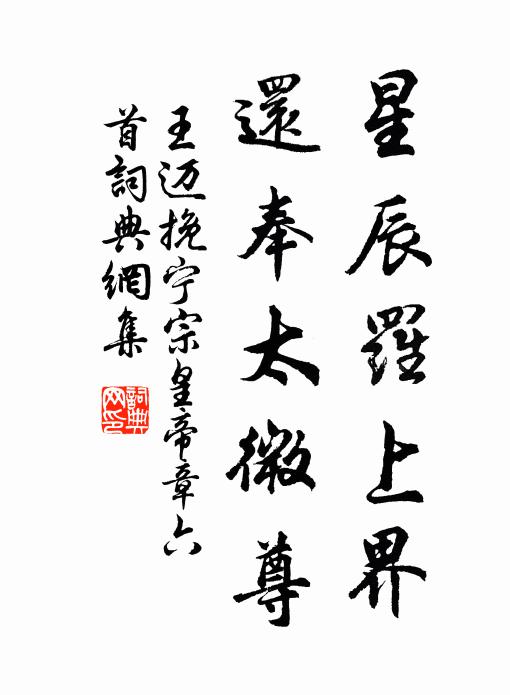 星辰羅上界
還奉太微尊
王迈挽宁宗皇帝章六
首詞典網集
詞典网印